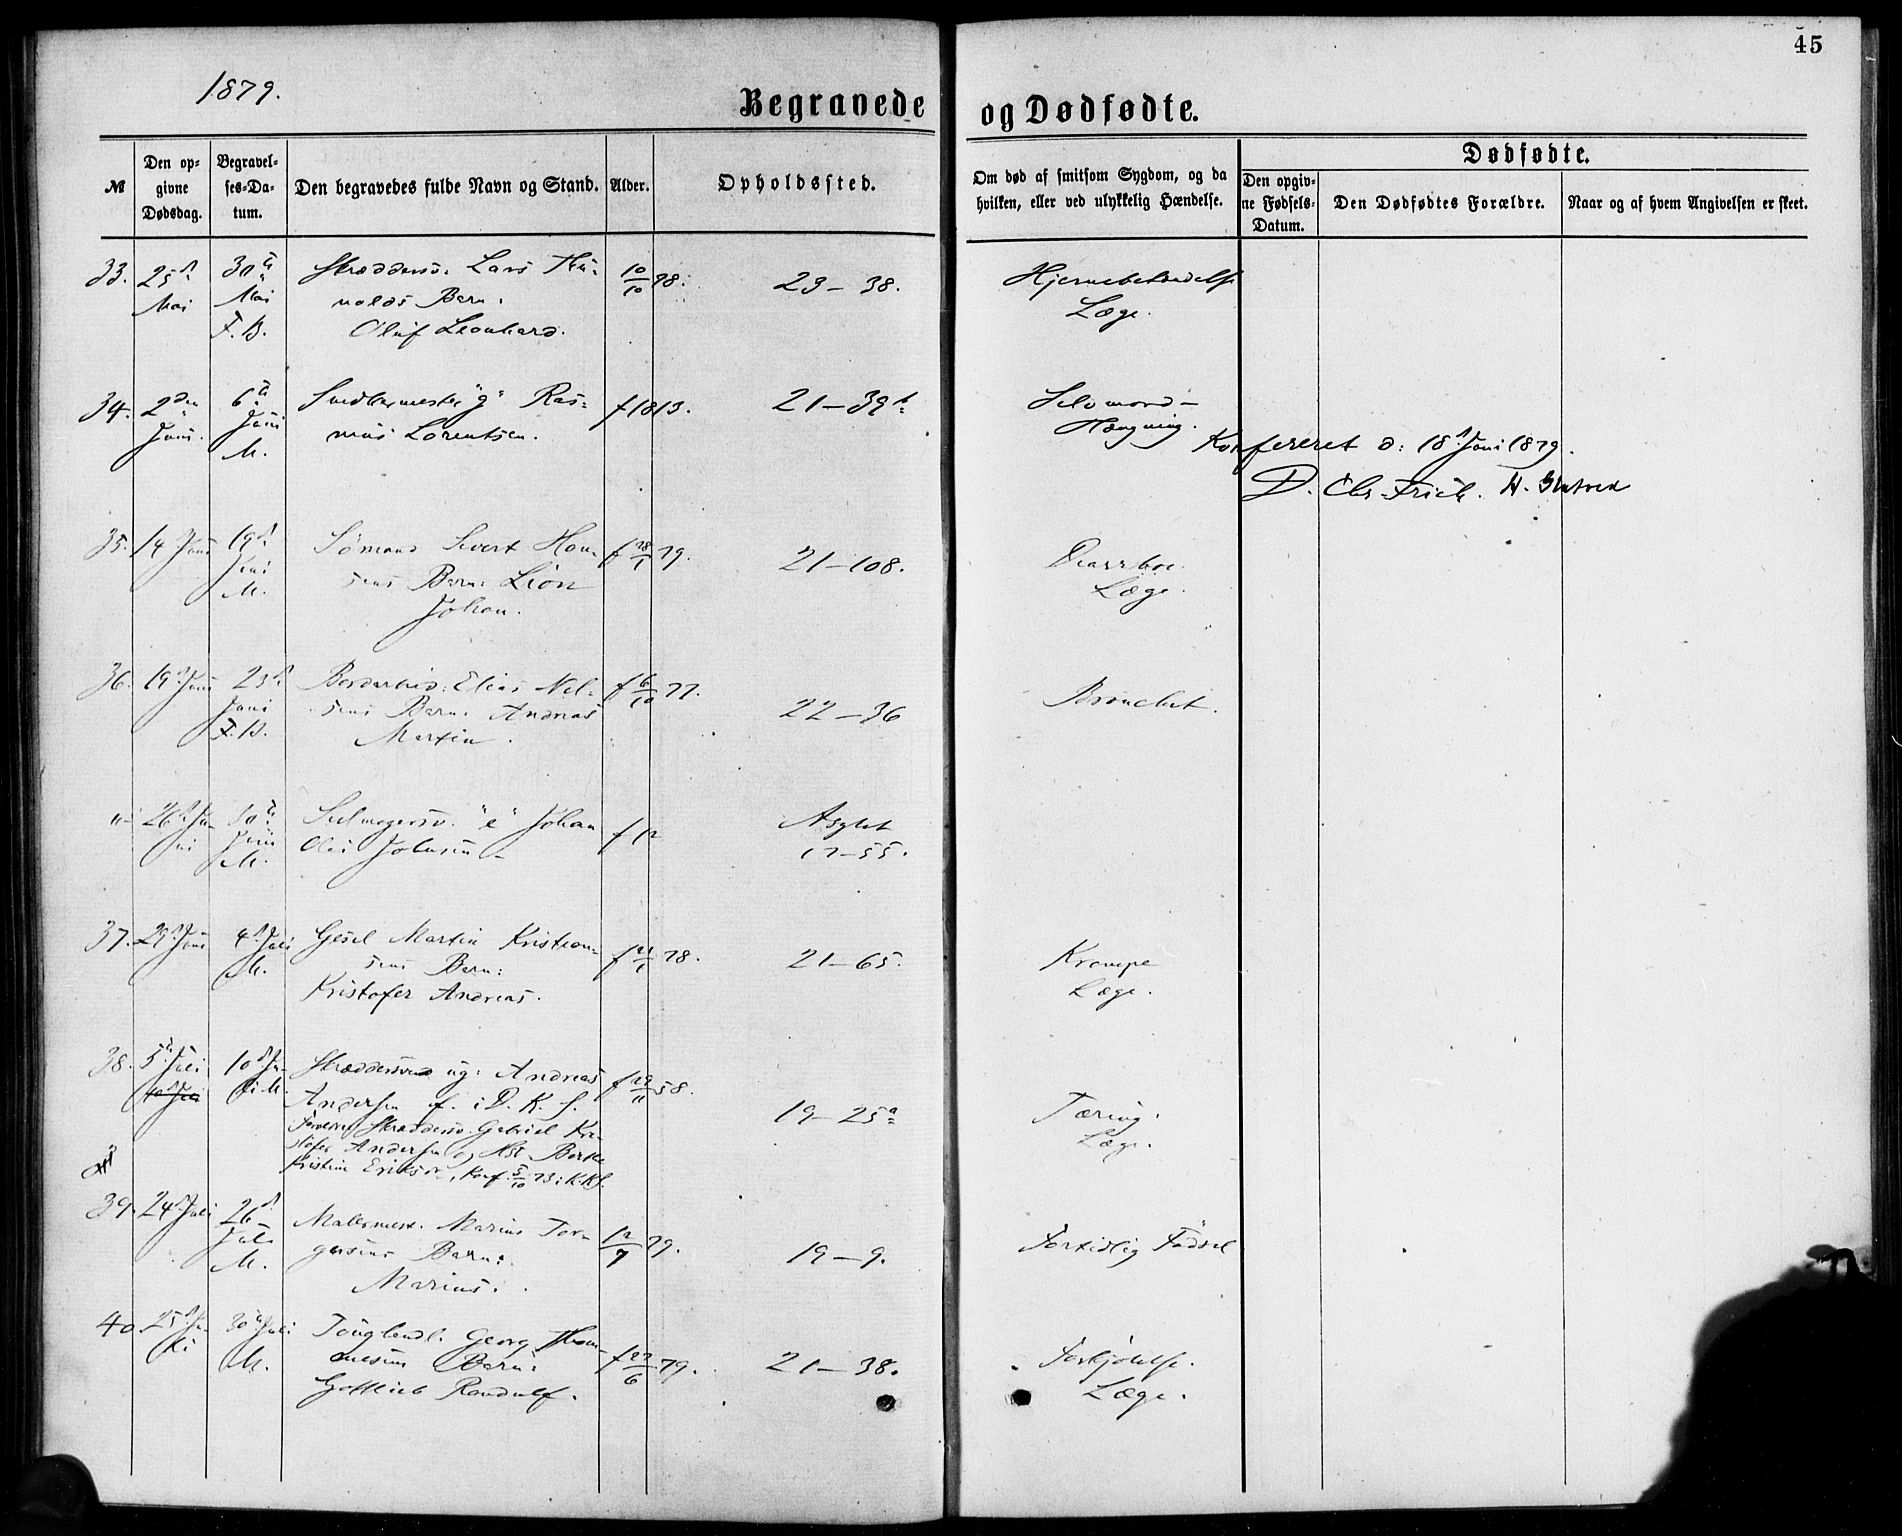 45
1879.
Begravede og Dødfødte.
№
Den op-
givne
Dødsdag.
Begravel-
ses-Da-
tum.
Den begravedes fulde Navn og Stand.
Alder.
Opholdssted.
Om død af smitsom Sygdom, og da
hvilken, eller ved ulykkelig Hændelse.
Dødfødte.
Den opgiv-
ne Fødsels-
Datum.
Den Dødfødtes Forældre.
Naar og af hvem Angivelsen er skeet.
33. 25 Mai 30 Mai F. B.
Skræddersv. Lars
Barn:
Oluf Leonhard.
10/10 78.
23–38.
Læge.
34. 2den Juni. 6 Juni M.
"g" Ras-
mus Lorentsen.
f 1813.
21–39
Selvmord –
Hængning.
Konfereret d: 18 Juni 1879.
D. Chr. Frich.
35. 14 Juni 19 Juni M.
Sømand Sivert Han-
sens Barn: Lion
Johan.
f 28/1 79.
21–108.
Diarrhoe.
Læge.
36. 19 Juni 23 Juni F. B.
Elias Nil-
sens Barn: Andreas
Martin.
f 6/10 77.
22–36
Bronchit.
"- 26 Juni 30 Juni M.
"e" Johan
Olai Johnsen –
f 12
Asylet
17–55.
37. 29 Juni 4 Juli M.
Gesel Martin Kristian-
sens Barn:
Kristofer Andreas.
78.
21–65.
Krampe
Læge.
38. 5 Juli 10 Juli M.
Skræddersvend ug: Andreas
Andersen f. i D. K. S.
Forældre: Skræddersv. Gabriel Kri-
stofer Andersen og Hst. Berthe
Kristine Eriksdr, Konf. 5/10 73 i K.K.S.
f 29/11 58.
19–25a
Tæring.
Læge.
39. 24 Juli 26 Juli M.
Malermest. Marius Tor-
gersens Barn:
Marius.
12/7 79.
19–9.
Fortidlig Födsel
40 25 Juli 30 Juli M.
Georg Thom-
mesens Barn:
Gottlieb Randulf.
f 27/6 79.
21–38.
Forkjølelse.
Læge.